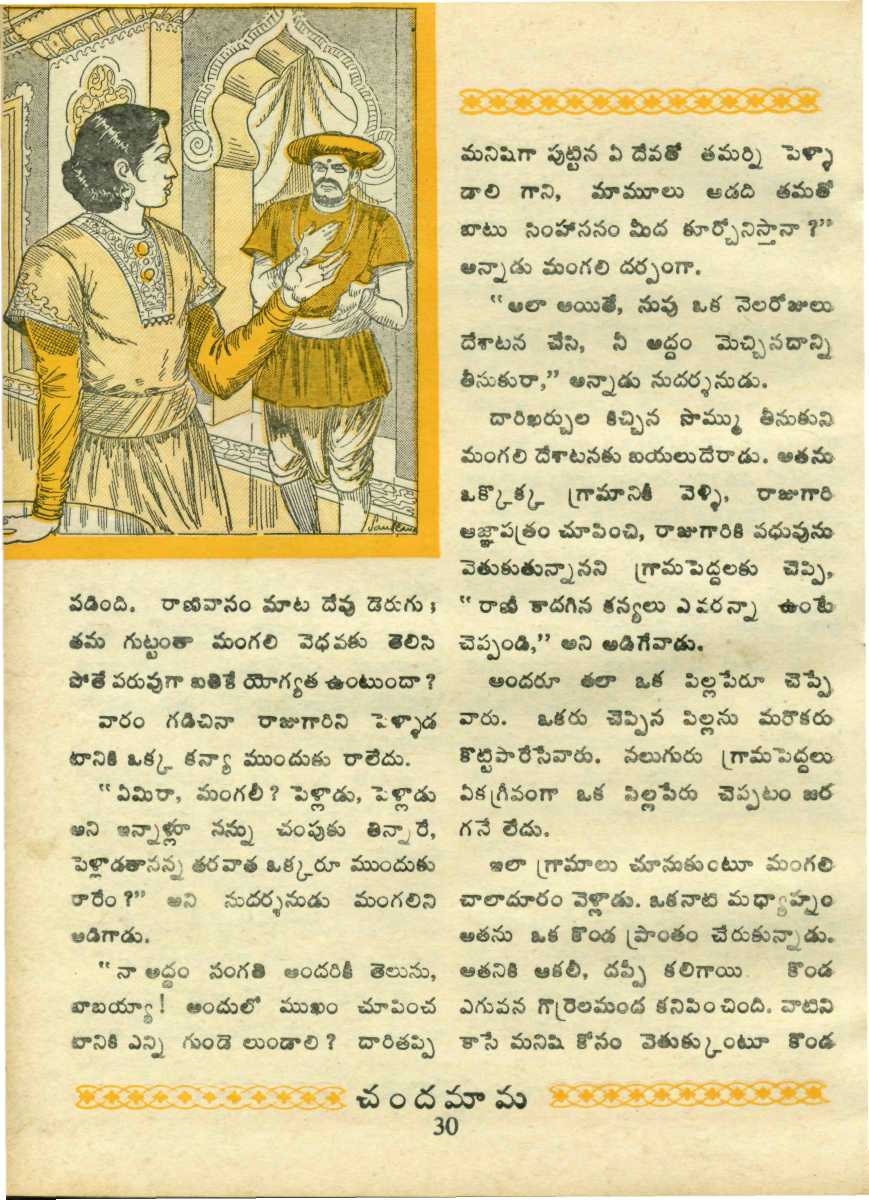 పడింది. రాణివాసం మాట దేవు డెరుగు;
తమ గుట్టంతా మంగలి వెధవకు తెలిసి
పోతే పరువుగా బతికే యోగ్యత ఉంటుందా?
వారం గడిచినా రాజుగారిని పెళ్ళాడ
టానికి ఒక్క కన్యా ముందుకు రాలేదు.
“ఏమిరా, మంగలీ? పెళ్లాడు, పెళ్లాడు
అని ఇన్నాళ్లూ నన్ను చంపుకు తిన్నారే,
పెళ్లాడతానన్న తరవాత ఒక్కరూ ముందుకు
రారేం?” అని సుదర్శనుడు మంగలిని
అడిగాడు.
“నా అద్దం సంగతి అందరికీ తెలుసు,
బాబయ్యా! అందులో ముఖం చూపించ
టానికి ఎన్ని గుండె లుండాలి? దారితప్పి
మనిషిగా పుట్టిన ఏ దేవతో తమర్ని పెళ్ళా
డాలి గాని, మామూలు ఆడది తమతో
బాటు సింహాసనం మీద కూర్చోనిస్తానా?”
అన్నాడు మంగలి దర్పంగా.
“అలా అయితే, నువు ఒక నెలరోజులు
దేశాటన చేసి, నీ అద్దం మెచ్చినదాన్ని
తీసుకురా,” అన్నాడు సుదర్శనుడు.
దారిఖర్చుల కిచ్చిన సొమ్ము తీసుకుని
మంగలి దేశాటనకు బయలుదేరాడు. అతను
ఒక్కొక్క గ్రామానికీ వెళ్ళి, రాజుగారి
ఆజ్ఞాపత్రం చూపించి, రాజుగారికి వధువును
వెతుకుతున్నానని గ్రామపెద్దలకు చెప్పి,
“రాణీ కాదగిన కన్యలు ఎవరన్నా ఉంటే
చెప్పండి,” అని అడిగేవాడు.
అందరూ తలా ఒక పిల్లపేరూ చెప్పే
వారు. ఒకరు చెప్పిన పిల్లను మరొకరు
కొట్టిపారేసేవారు. నలుగురు గ్రామపెద్దలు
ఏకగ్రీవంగా ఒక పిల్లపేరు చెప్పటం జర
గనే లేదు.
ఇలా గ్రామాలు చూసుకుంటూ మంగలి
చాలాదూరం వెళ్లాడు. ఒకనాటి మధ్యాహ్నం
అతను ఒక కొండ ప్రాంతం చేరుకున్నాడు.
అతనికి ఆకలీ, దప్పీ కలిగాయి. కొండ
ఎగువన గొర్రెలమంద కనిపించింది. వాటిని
కాసే మనిషి కోసం వెతుక్కుంటూ కొండ
చందమామ
30